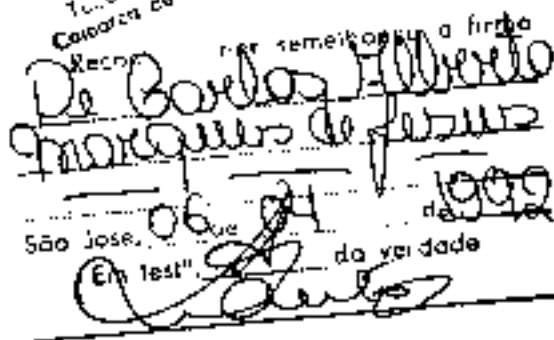 Comarca
Reco por semelhança a firma
De Carlos Alberto
Marques de Jesus
São José, 06 de de 1992
Em testº da verdade